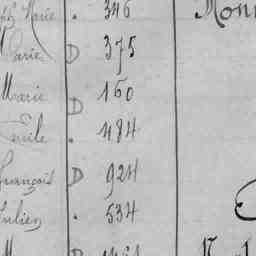 Marie . 346
Marie D 375
Marie D 160
Emile . 484
François D 924
Julien . 534